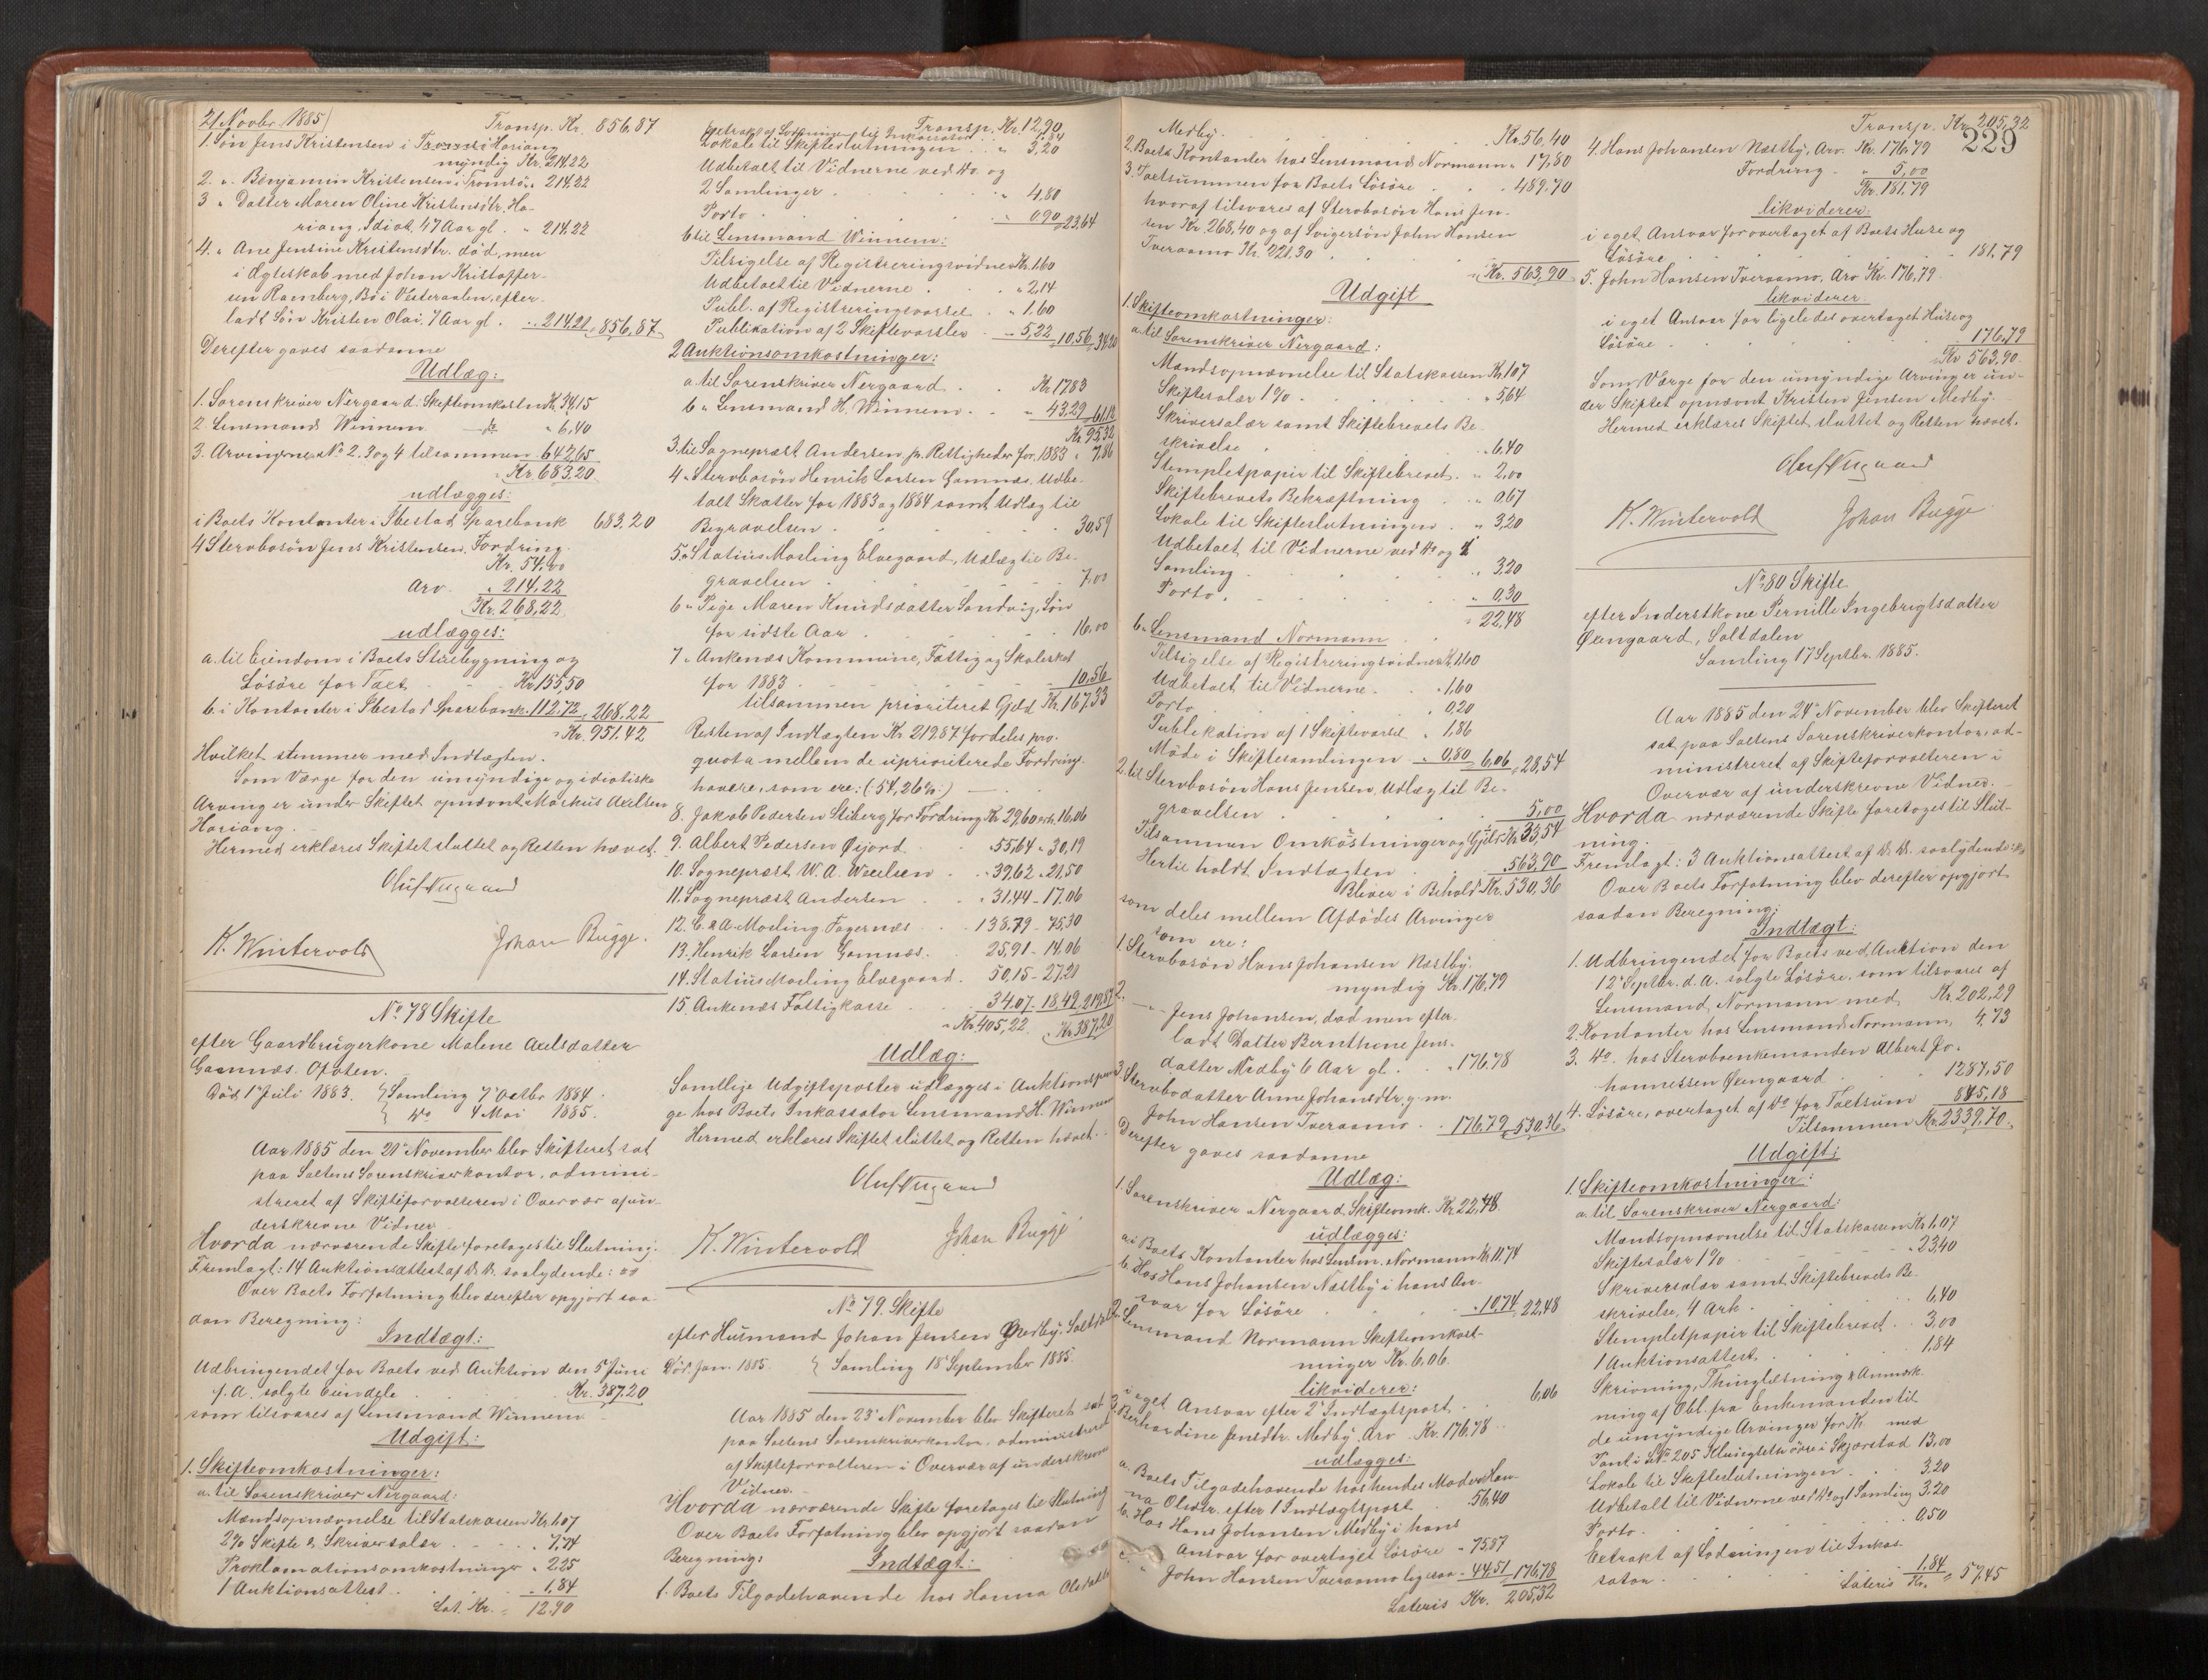 21 Novbr. 1885
Transp. Kr. 856,87
1. Søn Jens Kristensen i Hariang
myndig Kr. 214,22
2. " Benjamin Kristensen i Tromsö " 214,22
3 " Datter Maren Oline Kristensdtr. Ha-
riang, Idiot, 47 Aar gl. " 214,22
4. " Ane Jensine Kristensdtr. död, men
i Ægteskab med Johan Kristoffer-
sen Ramberg, Bö i Vesteraalen, efter-
ladt Sön Kristen Olai, 7 Aar gl. " 214,21 " 856,87
Derefter gaves saadanne
Udlæg:
1. Sorenskriver Nergaard: Skifteomkostn. Kr. 34,15
2. Lensmand Winnem " 6,40
3. Arvingerne No 2, 3 og 4 tilsammen 642,65
Kr. 683,20
udlægges:
i Boets Kontanter i Ibestad Sparebank 683.20
4 Stervbosön Jens Kristensen, Fordring
Kr. 54,00
Arv. " 214,22
Kr. 268,22
udlægges:
a. til Eiendom i Boets Stuebygning og
Lösöre for Taxt Kr. 155,50
b. i Kontanter i Ibestad Sparebank " 112.72 " 268.22
Kr. 951.42
Hvilket stemmer med Indtægten.
Som Værge for den umyndige og idiotiske
Arving er under Skiftet opnævnt Markus Axelsen
Hariang.
Hermed erklæres Skiftet sluttet og Retten hævet.
Oluf Nergaard
K. Wintervold
Johan Bugge.
No 78 Skifte
efter Gaardbrugerkone Malene Axelsdatter
Gamnæs. Ofoten.
Död 1 Juli 1883. Samling 7 Octbr 1884.
do 4 Mai 1885.
Aar 1885 den 21 November blev Skifteret sat
paa Saltens Sorenskriverkontor, admini-
streret af Skifteforvalteren i Overvær af un-
derskrevne Vidner
Hvorda nærværende Skifte foretoges til Slutning.
Fremlagt: 14 Auktionsattest af D. D. saalydende:
Over Boets Forfatning blev derefter opgjort saa-
dan Beregning:
Indtægt:
Udbringendet for Boets ved Auktion den 5 Juni
f. A. solgte Eiendele Kr. 387.20
som tilsvares af Lensmand Winnem
Udgift:
1. Skifteomkostninger:
a. til Sorenskriver Nergaard:
Mandsopnævnelse til Statskassen Kr. 1,07
2% Skifte & Skriversalær " 7,74
Proklamationsomkostninger " 2,25
1 Auktionsattest " 1,84
Lat. Kr. 12.90
Transp. Kr. 12,90
Extrakt af Lodningen til Inkassator 1,84
Lokale til Skifteslutningen " 3,20
Udbetalt til Vidnerne ved do og
2 Samlinger " 4,80
Porto " 0,90 " 23,64
b. til Lensmand Winnem:
Tilsigelse af Registreringsvidner Kr. 1,60
Udbetalt til Vidnerne " 2,14
Publ. af Registreringsvarsel " 1,60
Publikation af 2 Skiftevarsler " 5,22 " 10,56 " 34,20
2 Auktionsomkostninger:
a. til Sorenskriver Nergaard Kr. 17.83
b " Lensmand H. Winnem " 43.29 61,12
Kr. 95,32
3. til Sognepræst Andersen pr. Rettigheder for 1883 " 7,86
4 " Stervbosön Henrik Larsen Gamnæs, Udbe-
talt Skatter for 1883 og 1884 samt Udlæg til
Begravelsen 30,59
5 " Statius Mosling Elvegaard, Udlæg til Be-
gravelsen 7,00
6 " Pige Maren Knudsdatter Sandvig, Lön
for sidste Aar 16,00
7 " Ankenæs Kommune, Fattig og Skoleskat
for 1883 10,56
tilsammen prioriteret Gjæld Kr. 167,33
Resten af Indtægten Kr. 219.87 fordeles pro-
quota mellem de uprioriterede Fordring-
havere, som ere: (: 54,26% :)
8. Jakob Pedersen Stiberg for Fordring Kr. 29,60 erh. 16,06
9. Albert Pedersen Öijord " 55,64 " 30,19
10. Sognepræst W. A. Wexelsen " 39,62 " 21,50
11. Sognepræst Andersen " 31,44 " 17,06
12. C. & A. Mosling Fagernæs 138,79 " 75,30
13. Henrik Larsen Gamnæs. 25,91 " 14,06
14. Statius Mosling Elvegaard. 50,15 " 27,21
15. Ankenæs Fattigkasse 34.07 " 18,49 219,87
Kr. 405,22 Kr. 387,20
Udlæg:
Samtlige Udgiftsposter udlægges i Auktionspen-
ge hos Boets Inkassator Lensmand H. Winnem
Hermed erklæres Skiftet sluttet og Retten hævet.
Oluf Nergaard
K. Wintervold
Johan Bugge
No 79. Skifte
efter Husmand Johan Jensen Medby, Saltdalen
Död Jan. 1885. Samling 18 September 1885.
Aar 1885 den 23 November blev Skifteret sat
paa Saltens Sorenskriverkontor, administreret
af Skifteforvalteren i Overvær af underskrevne
Vidner.
Hvorda nærværende Skifte foretoges til Slutning
Over Boets Forfatning blev opgjort saadan
Beregning:
Indtægt:
1. Boets Tilgodehavende hos Hanna Olsdatter
Medby. Kr. 56,40
2. Boets Kontanter hos Lensmand Normann " 17,80
3. Taxtsummen for Boets Lösöre " 489.70
hvoraf tilsvares af Stervbosön Hans Jen-
sen Kr. 268,40 og af Svigersön John Hansen
Tveraamo Kr. 221.30
Kr. 563,90
Udgift
1. Skifteomkostninger:
a. til Sorenskriver Nergaard:
Mandsopnævnelse til Statskassen Kr. 1,07
Skiftesalær 1% " 5,64
Skriversalær samt Skiftebrevets Be-
skrivelse " 6,40
Stemplet papir til Skiftebrevet " 2,00
Skiftebrevets Bekræftning " 0,67
Lokale til Skifteslutningen " 3,20
Udbetalt til Vidnerne ved do og 1
Samling " 3,20
Porto. " 0,30
" 22,48
b. Lensmand Normann
Tilsigelse af Registreringsvidner Kr. 1,60
Udbetalt til Vidnerne " 1,60
Porto " 0,20
Publikation af 1 Skiftevarsel " 1,86
Möde i Skiftesamlingen " 0,80 " 6,06 " 28,54
2. til Stervbosön Hans Jensen, Udlæg til Be-
gravelsen 5,00
Tilsammen Omkostninger og Gjæld Kr. 33,54
Hertil holdt Indtægten 563,90
Bliver i Behold Kr. 530,36
som deles mellem Afdödes Arvinger
som ere:
1. Stervbosön Hans Johansen Næstby
myndig Kr. 176,79
2. " Jens Johansen, död men efter-
ladt Datter Bernthine Jens-
datter Medby 6 Aar gl. " 176,78
3 Stervbodatter Anne Johansdtr. g. m.
John Hansen Tveraamo " 176,79 " 530,36
Derefter gaves saadanne
Udlæg:
1. Sorenskriver Nergaard Skifteomk. Kr. 22,48.
udlægges:
a. i Boets Kontanter hos Lensm. Normann Kr. 11.74
b. Hos Hans Johansen Næstby i hans An-
svar for Lösöre " 10,74 " 22,48
2. Lensmand Normann Skifteomkost-
ninger Kr. 6,06.
likviderer:
i eget Ansvar efter 2 Indtægtspost 6,06
3. Berhardine Jensdtr. Medby, Arv Kr. 176,78
udlægges:
a. Boets Tilgodehavende hos hendes Moder Han-
na Olsdtr. efter 1 Indtægtspost 56,40
b. Hos Hans Johansen Medby i hans
Ansvar for overtaget Lösöre " 75,87
c. " John Hansen Tveraamo ligesaa " 44,51 " 176,78
Lateris Kr. 205,32
Transp. Kr. 205,32
229
4. Hans Johansen Næstby, Arv. Kr. 176,79
Fordring " 5,00
Kr. 181,79
likviderer:
i eget Ansvar for overtaget af Boets Huse og
Lösöre 181,79
5. John Hansen Tveraamo, Arv Kr. 176,79
likviderer
i eget Ansvar for ligeledes overtaget Huse og
Lösöre 176,79
Kr 563,90.
Som Værge for den umyndige Arving er un-
der Skiftet opnævnt Kristen Jensen Medby.
Hermed erklæres Skiftet sluttet og Retten hævet.
Oluf Nergaard
K. Wintervold
Johan Bugge
No 80 Skifte
efter Inderstkone Pernille Ingebrigtsdatter
Öxengaard, Saltdalen
Samling 17 Septbr. 1885.
Aar 1885 den 24 November blev Skifteret
sat paa Saltens Sorenskriverkontor, ad-
ministreret af Skifteforvalteren i
Overvær af underskrevne Vidner.
Hvorda nærværende Skifte foretoges til Slut-
ning.
Fremlagt: 3 Auktionsattest af D. D. saalydende:
Over Boets Forfatning blev derefter opgjort
saadan Beregning:
Indtægt:
1. Udbringendet for Boets ved Auktion den
12 Septbr. d. A. solgte Lösöre, som tilsvares af
Lensmand Normann med Kr. 202,29
2. Kontanter hos Lensmand Normann 4,73
3. do. hos Stervboenkemanden Albert Jo-
hannessen Öxengaard 1287,50
4. Lösöre, overtaget af do for Taxtsum 845,18
Tilsammen Kr. 2339,70.
Udgift:
1. Skifteomkostninger:
a. til Sorenskriver Nergaard:
Mandsopnævnelse til Statskassen Kr. 1,07
Skiftesalær 1% " 23,40
Skriversalær samt Skiftebrevets Be-
skrivelse, 4 Ark 6,40
Stemplet papir til Skiftebrevet 3,00
1 Auktionsattest 1,84
Skrivning, Thinglæsning & Anmærk-
ning af Obl. fra Enkemanden til
de umyndige Arvinger for Kr. med
Pant i LNo 205 i Skjerstad 13,00
Lokale til Skifteslutningen 3.20
Udbetalt til Vidnerne ved do og 1 Samling 3.20
Porto 0,50
Extrakt af Lodningen til Inkas-
sator 1,84
Lateris Kr. " 57,45